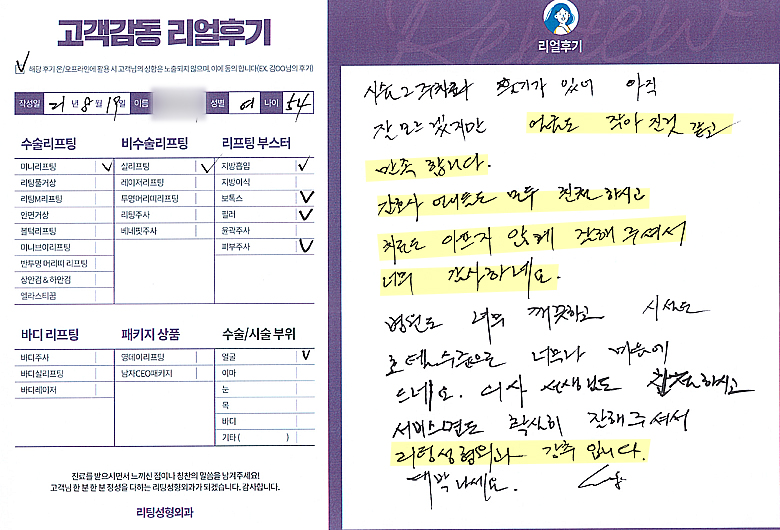 고객감동 리얼후기
해당 후기 온/오프라인에 활용 시 고객님의 성함은 노출되지 않으며, 이에 동의 합니다(EX, 김OO님의 후기)
작성일 21년 8월 19일 이름 성별 여 나이 54
수술리프팅 비수술리프팅 리프팅 부스터
미니리프팅 실리프팅 지방흡입
리팅풀거상 레이저리프팅 지방이식
리팅M리프팅 투명머리띠리프팅 보톡스
안면거상 리팅주사 필러
볼턱리프팅 베네핏주사 윤곽주사
미니브이리프팅 피부주사
반투명 머리띠 리프팅
상안검 & 하안검
엘라스티꿈
바디 리프팅 패키지 상품 수술/시술 부위
바디주사 영데이리프팅 얼굴
바디실리프팅 남자CEO패키지 이마
바디레이저 눈
목
바디
기타 ( )
진료를 받으시면서 느끼신 점이나 칭찬의 말씀을 남겨주세요!
고객님 한 분 한 분 정성을 다하는 리팅성형외과가 되겠습니다. 감사합니다.
리팅성형외과
Review
리얼후기
시술 2주차라 붓기가 있어 아직
잘 모르겠지만 얼굴도 작아 진것 같고
만족 합니다.
간호사 언니들도 모두 친절 하시고
치료는 아프지 않게 잘해 주셔서
너무 감사하네요.
병원도 너무 깨끗하고 시설도
호텔수준으로 너무나 마음에
드네요. 의사 선생님도 친절하시고
서비스면도 확실히 잘해주셔서
리팅성형외과 강추 입니다.
대박나세요.